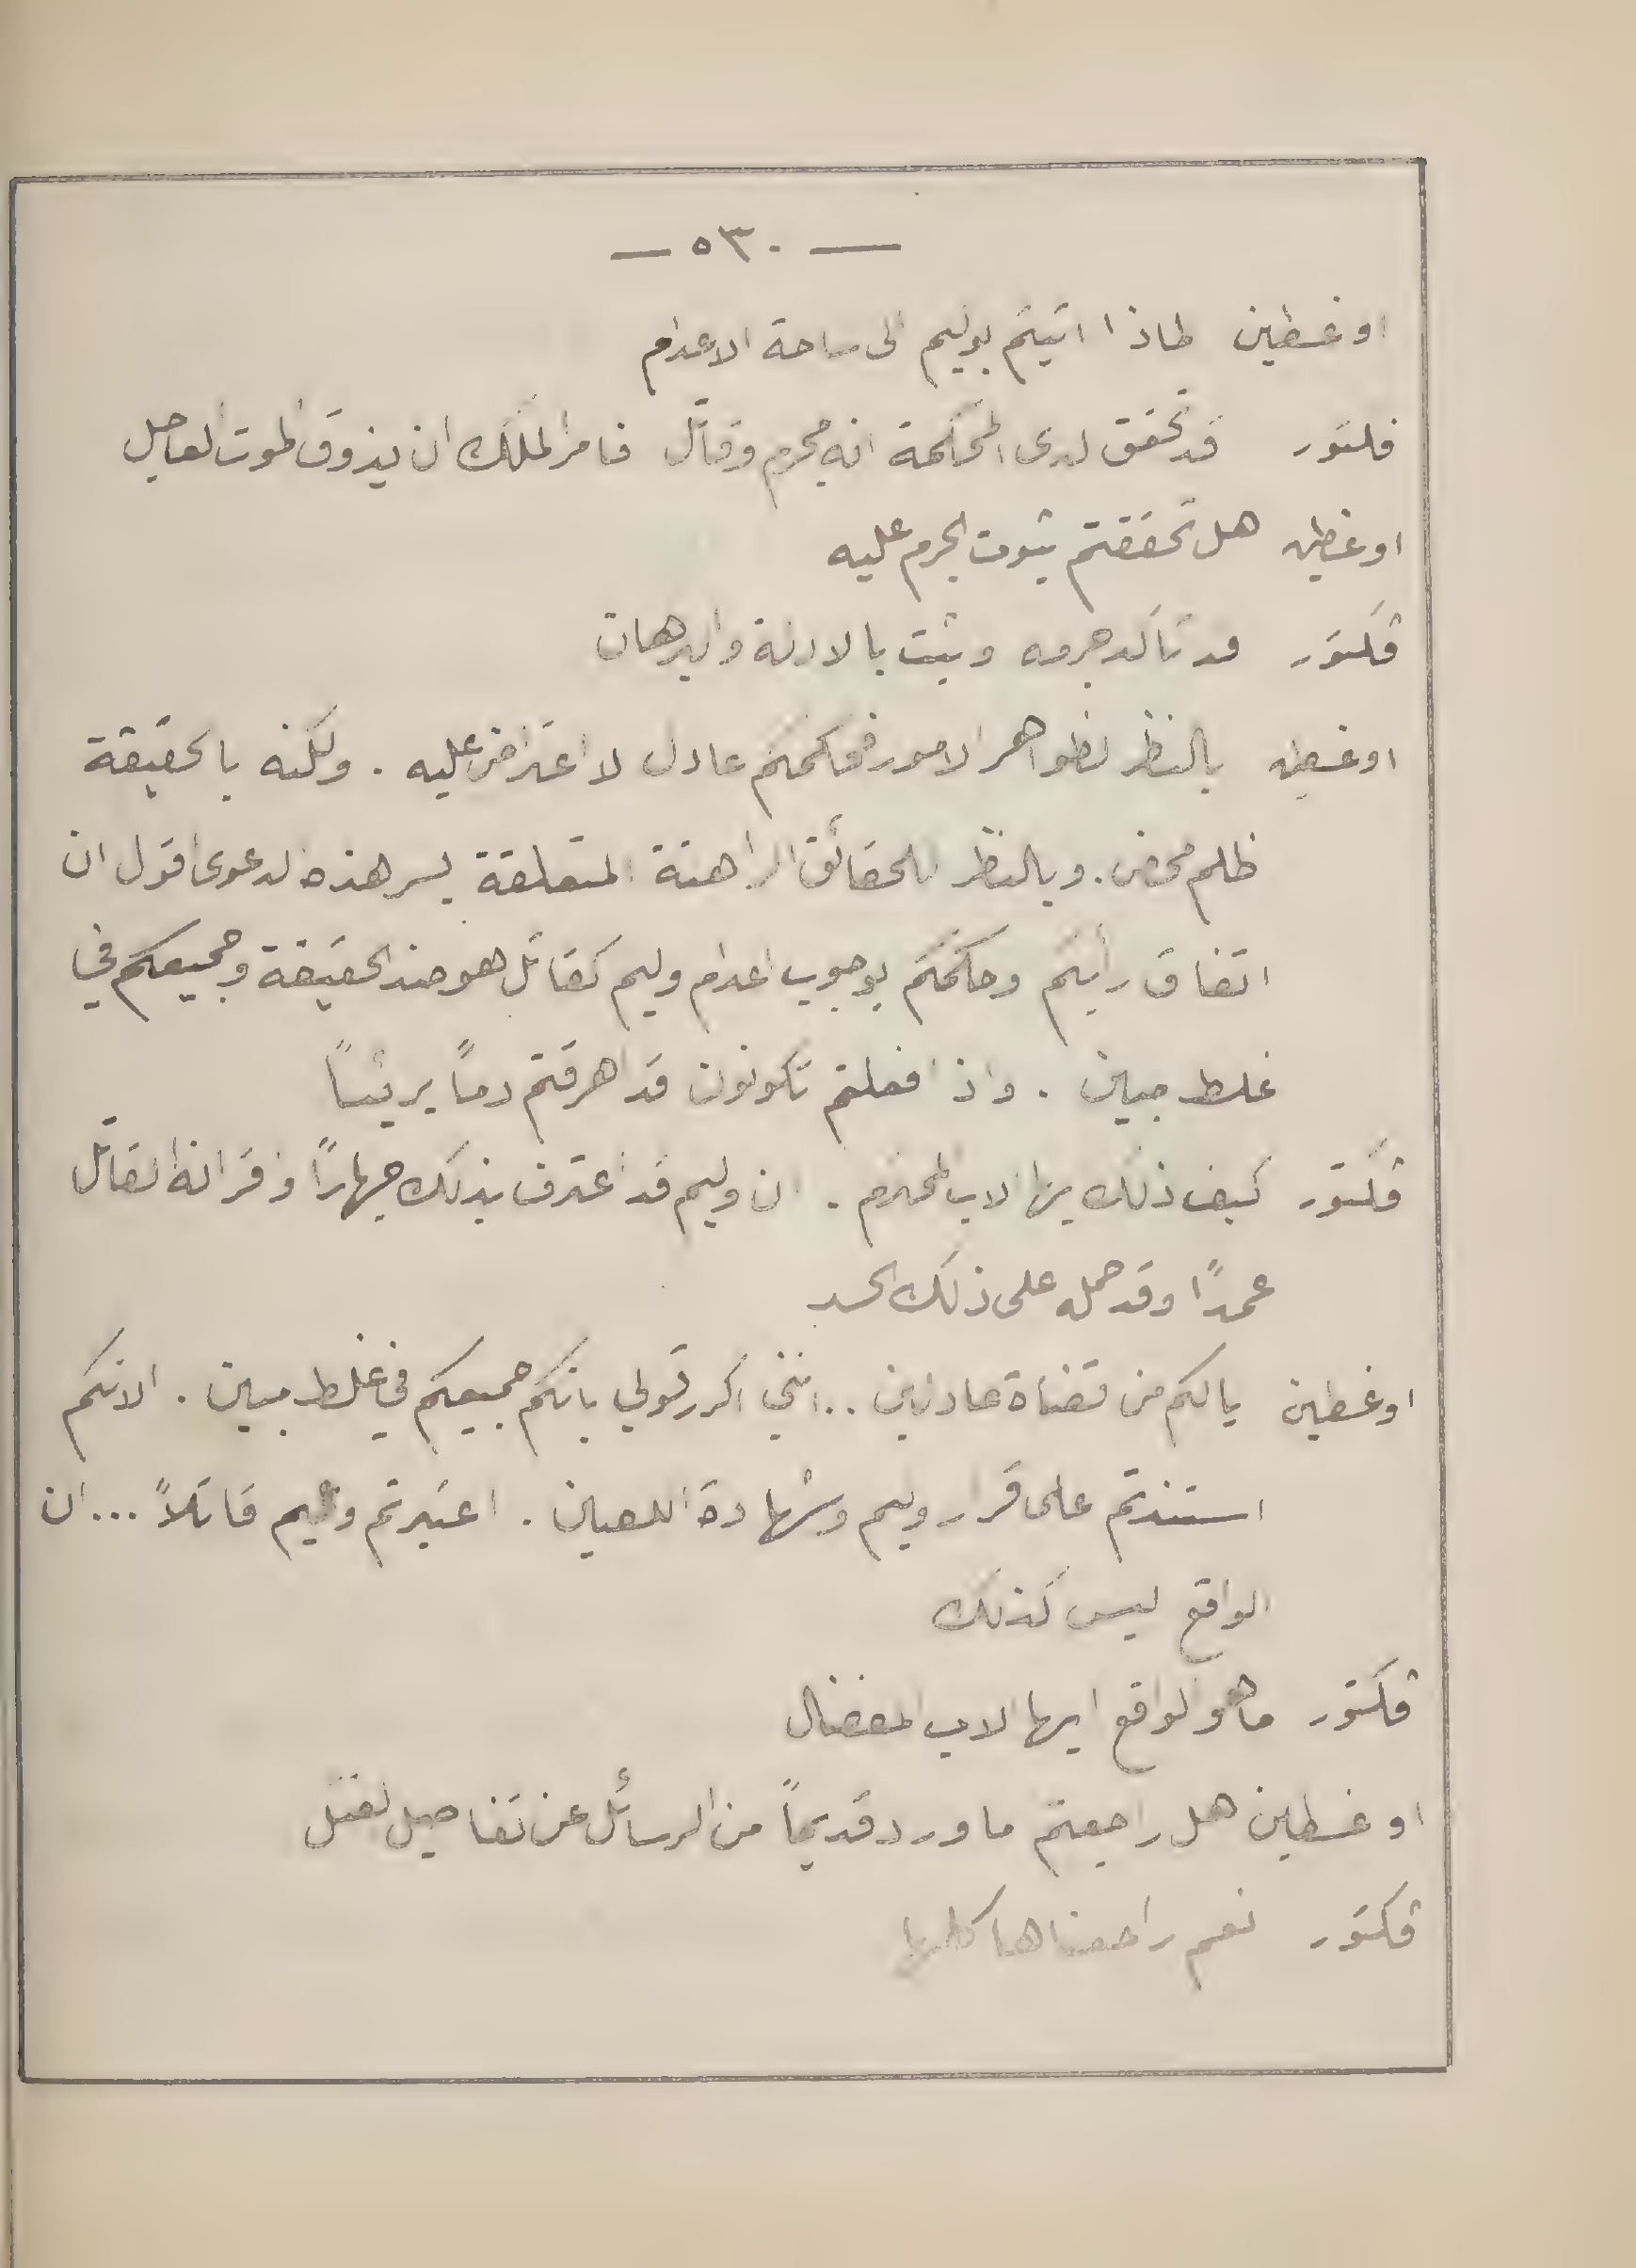 — ٥٣٠ —
اوغسطين لماذا اتيتم بوليم الى ساحة الاعدام
فكتور قد تحقق لدى المحكمة انه مجرم وقاتل فامر الملك ان يذوق الموت العاجل
اوغسطين هل تحققتم ثبوت الجرم عليه
فكتور قد تأكد جرمه وثبت بالادلة والبرهان
اوغسطين بالنظر لظواهر الامور فحكمكم عادل لا اعتراض عليه . ولكنه بالحقيقة
ظلم محض . وبالنظر للحقائق الراهنة المتعلقة بسر هذه الدعوى اقول ان
اتفاق رأيكم وحكمكم بوجوب اعدام وليم كقاتل هو ضد الحقيقة وجميعكم في
غلط مبين . واذا فعلتم تكونون قد اهرقتم دماً بريئاً
فكتور كيف ذلك ايها الاب المحترم . ان وليم قد اعترف بذلك جهاراً واقر انه القاتل
عمداً وقد حمله على ذلك الحسد
اوغسطين يالكم من قضاة عادلين .. انني اكرر قولي بانكم جميعكم في غلط مبين . الانكم
استندتم على قرار وليم وشهادة اللعين . اعتبرتم وليم قاتلاً ... ان
الواقع ليس كذلك
فكتور ما هو الواقع ايها الاب المفضال
اوغسطين هل راجعتم ما ورد قديماً من الرسائل عن تفاصيل القتل
فكتور نعم راجعناها كلها